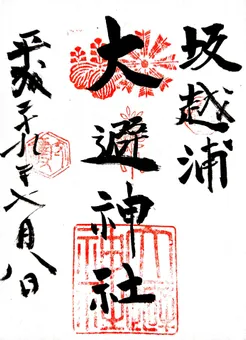 坂越浦
大避神社
平成二十九年七月八日